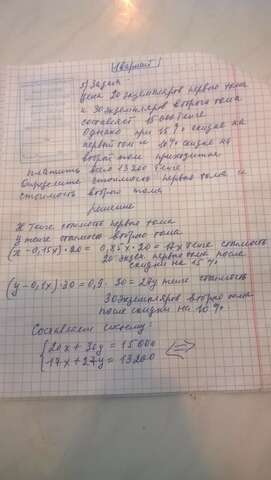 I вариант
5) Задача
Цена 20 экземпляров первого тома
и 30 экземпляров второго тома
составляет 15000 тенге
Однако при 15% скидке на
первый том и 10% скидке на
второй том приходится
платить всего 13200 тенге
Определите стоимость первого тома и
стоимость второго тома
Решение
X тенге стоимость первого тома
у тенге стоимость второго тома
(х - 0,15х) · 20 = 0,85х · 20 = 17х тенге стоимость
20 экзем. первого тома после
скидки на 15 %
(у - 0,1х) · 30 = 0,9 · 30 = 27у тенге стоимость
30 экземпляров второго тома
после скидки на 10 %
Составляем систему:
{ 20х + 30у = 15000
{ 17х + 27у = 13200 <=>